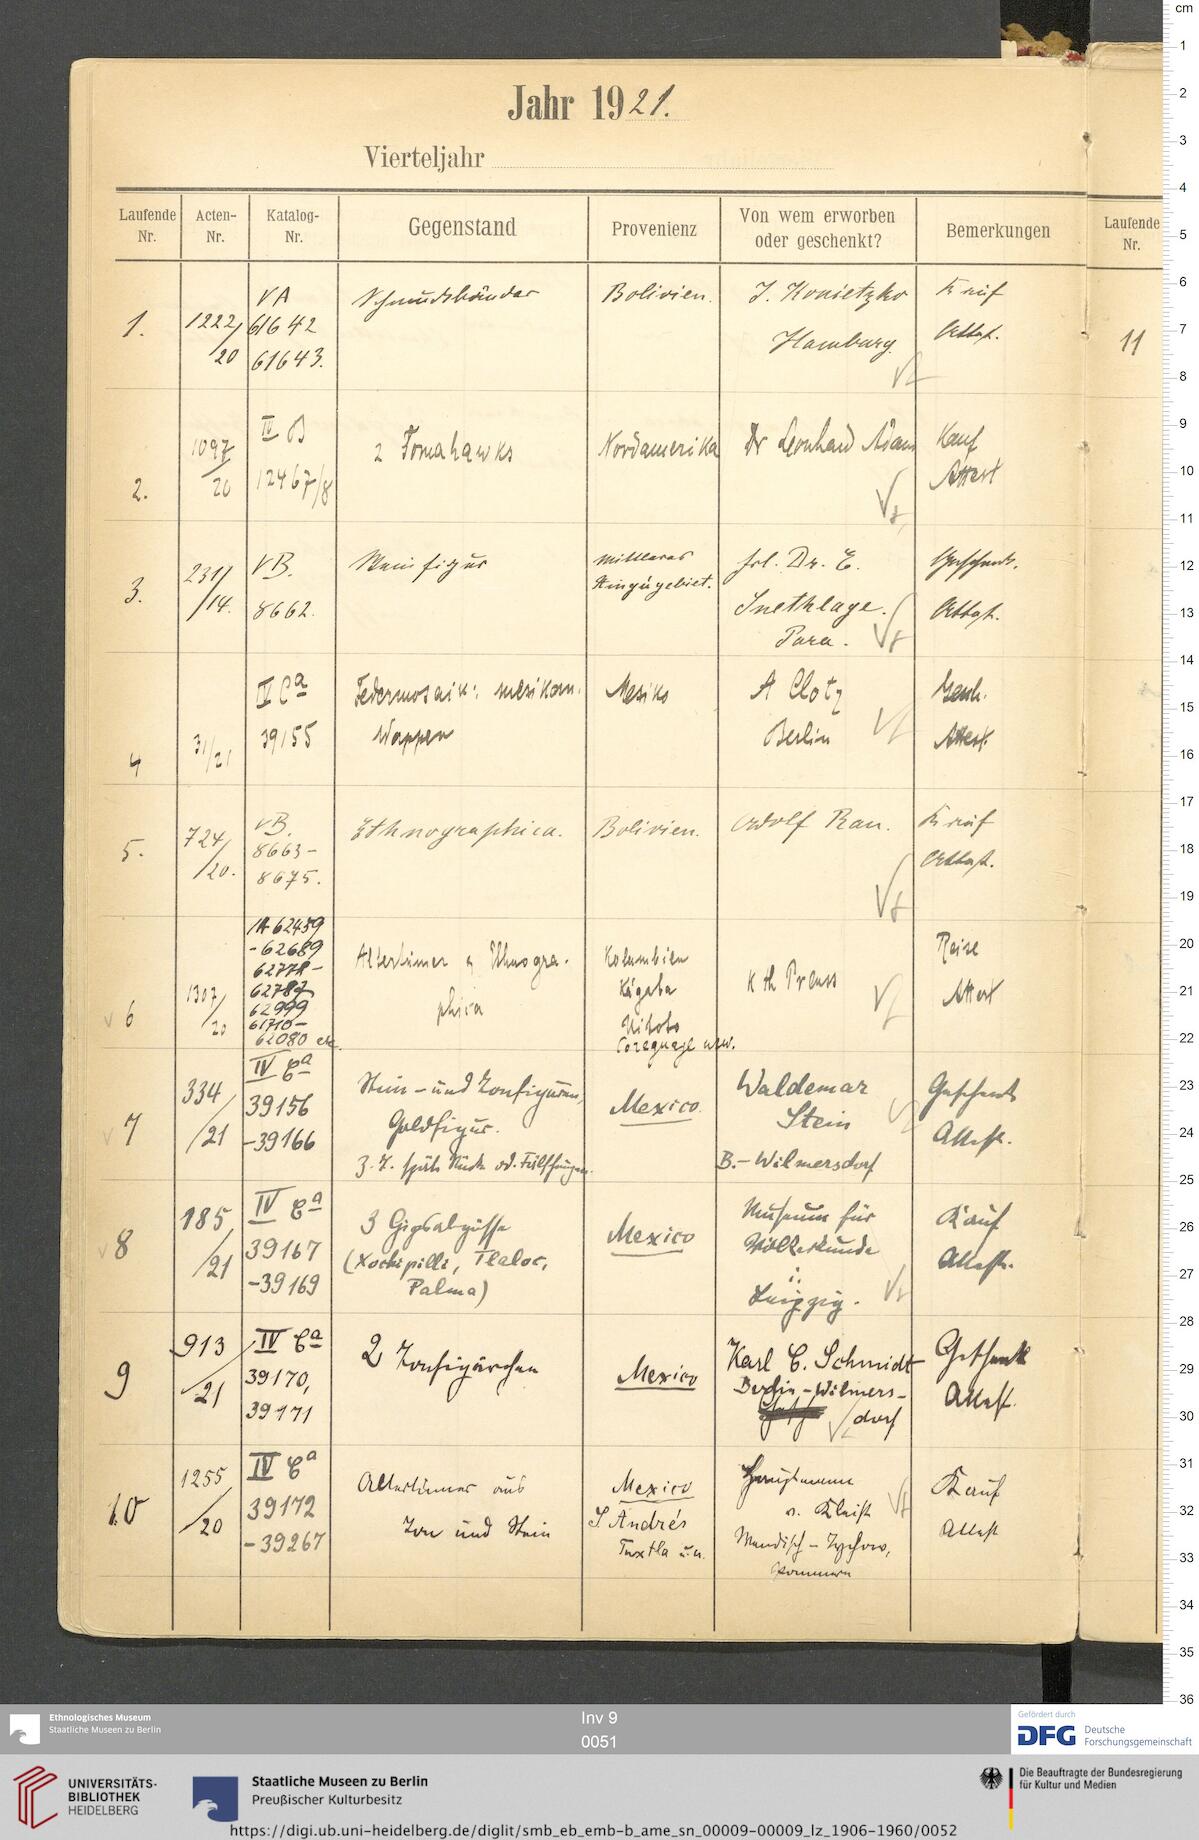 Jahr 1921.
Vierteljahr
Laufende Nr.
Acten-Nr.
Katalog-Nr.
Gegenstand
Provenienz
Von wem erworben oder geschenkt?
Bemerkungen
Laufende Nr.
1.
1222/20
VA
61642
61643.
Schmuckbänder
Bolivien.
J. Konietzko
Hamburg.
Kauf
Attest.
11
2.
1097/20
IV B
12467/8
2 Tomahawks
Nordamerika
Dr Leonhard Adam
Kauf
Attest
3.
231/14.
VB.
8662.
Steinfigur
Mittleres
Xingúgebiet.
Frl. Dr. E.
Snethlage.
Para.
Geschenk.
Attest.
4
31/21
IV Ca
39155
Federmosaik: mexikan.
Wappen
Mexiko
A Clotz
Berlin
Gesch.
Attest.
5.
724/20.
VB.
8663-
8675.
Ethnographica.
Bolivien.
Adolf Rau.
Kauf
Attest.
6
1307/20
VA 62459
-62689
62778-
62787
62999
61710-
62080 etc.
Altertümer u Ethnogra-
phica
Kolumbien
Kágaba
Uitoto
Coreguaje usw.
K Th Preuss
Reise
Attest
7
334/21
IV Ca
39156
-39166
Stein- und Tonfiguren,
Goldfigur.
z. T. späte Stücke od. Fälschungen.
Mexico.
Waldemar
Stein
B.-Wilmersdorf
Geschenk
Attest.
8
185/21
IV Ca
39167
-39169
3 Gipsabgüsse
(Xochipilli, Tlaloc,
Palma)
Mexico
Museum für
Völkerkunde
i:
Leipzig.
Kauf
Attest.
9
913/21
IV Ca
39170,
39171
2 Tonfigürchen
Mexico
Karl C. Schmidt
Berlin-Wilmers-
dorf
Geschenk
Attest.
10
1255/20
IV Ca
39172
-39267
Altertümer aus
Ton und Stein
Mexico
S Andrés
Tuxtla u.a.
Hauptmann
v. Kleist
Wendisch-Tychow,
Pommern
Kauf
Attest
cm
1
2
3
4
5
6
7
8
9
10
11
12
13
14
15
16
17
18
19
20
21
22
23
24
25
26
27
28
29
30
31
32
33
34
35
36
Ethnologisches Museum
Staatliche Museen zu Berlin
Inv 9
0051
Gefördert durch
DFG Deutsche
Forschungsgemeinschaft
UNIVERSITÄTS-
BIBLIOTHEK
HEIDELBERG
Staatliche Museen zu Berlin
Preußischer Kulturbesitz
Die Beauftragte der Bundesregierung
für Kultur und Medien
https://digi.ub.uni-heidelberg.de/diglit/smb_eb_emb-b_ame_sn_00009-00009_lz_1906-1960/0052